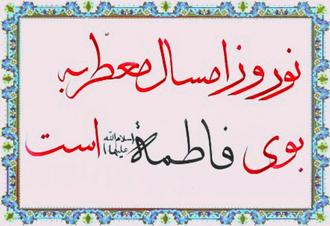 نوروز امسال معطر به
بوی فاطمهٔ سلام‌الله علیها است